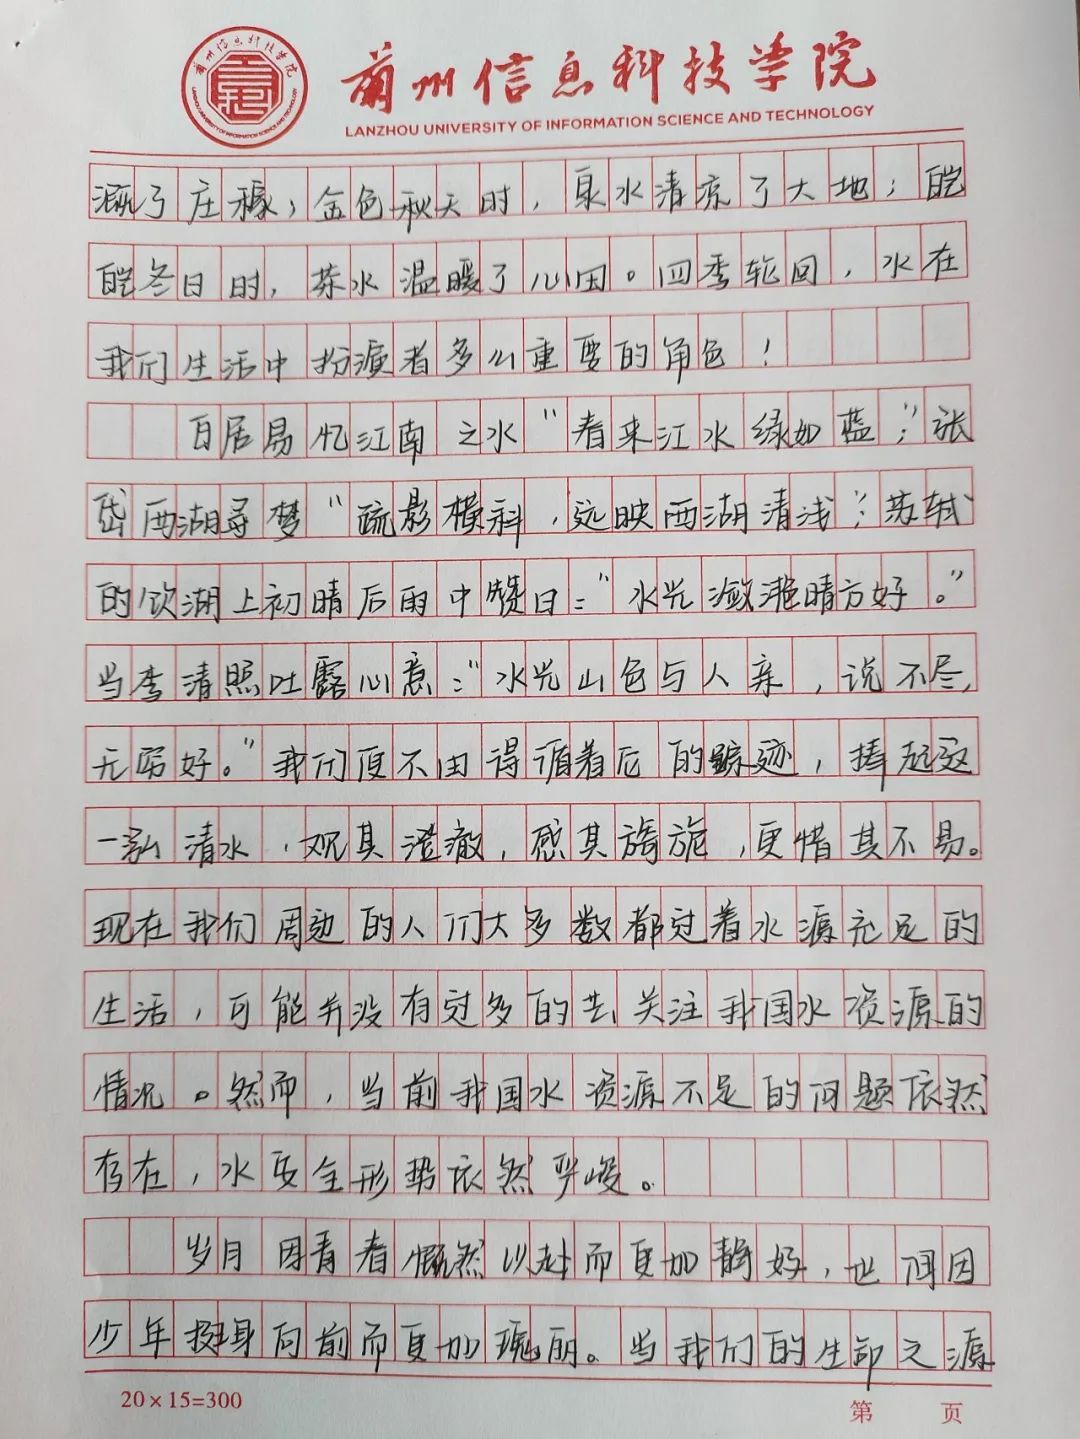 兰州信息科技学院
LANZHOU UNIVERSITY OF INFORMATION SCIENCE AND TECHNOLOGY
溉了庄稼；金色秋天时，泉水清凉了大地；皑
皑冬日时，茶水温暖了心田。四季轮回，水在
我们生活中扮演着多么重要的角色！
白居易忆江南之水“春来江水绿如蓝”；张
岱西湖寻梦“疏影横斜，远映西湖清浅”；苏轼
的饮湖上初晴后雨中赞曰：“水光潋滟晴方好。”
当李清照吐露心意：“水光山色与人亲，说不尽，
无穷好。”我们便不由得循着后的踪迹，捧起这
一泓清水，观其澄澈，感其旖旎，更惜其不易。
现在我们周边的人们大多数都过着水源充足的
生活，可能并没有过多的去关注我国水资源的
情况。然而，当前我国水资源不足的问题依然
存在，水安全形势依然严峻。
岁月因青春慨然以赴而更加静好，世间因
少年挺身向前而更加瑰丽。当我们的生命之源
20×15=300
第 页